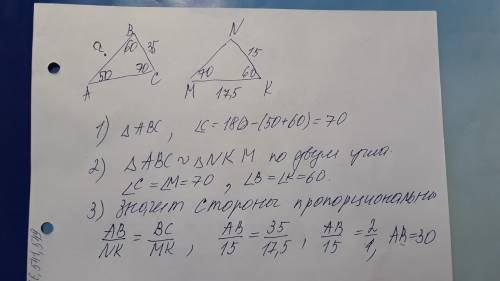 B N
? 60 35 15
50 70 70 60
A C M 17,5 K
1) △ABC, ∠C=180-(50+60)=70
2) △ABC ∾ △NKM по двум угла.
∠C=∠M=70, ∠B=∠K=60.
3) Значит стороны пропорциональны
AB/NK = BC/MK, AB/15 = 35/17,5, AB/15 = 2/1, AB=30